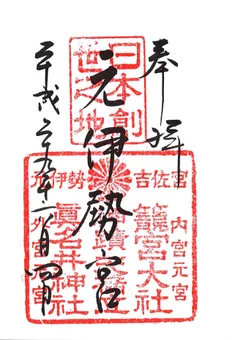 奉拝
日本創
世之地
元伊勢宮
平成二九年八月四日
吉佐宮
元伊勢
内宮元宮
籠宮大社
眞名井神社
外宮元宮